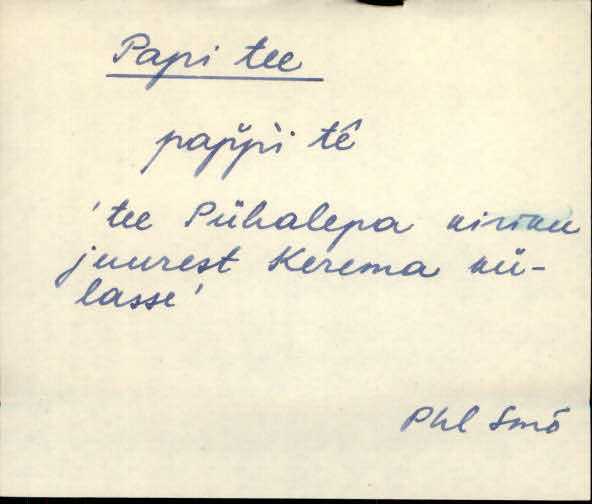 Papi tee
pap̆p̀i tê
'tee Pühalepa kiriku
juurest Kerema kü-
lasse'
Phl Smõ